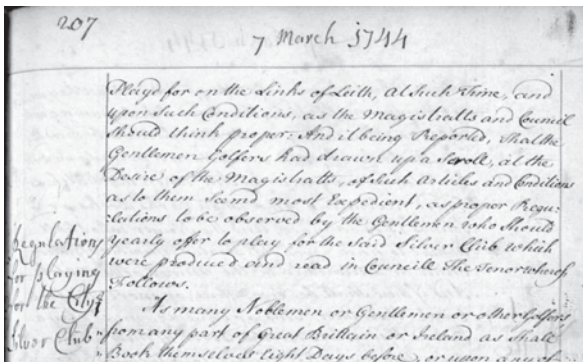 207
7 March 1744
Playd for on the Links of Leith, at Such Time, and
upon Such Conditions, as the Magistratts and Council
Should think proper: And it being Reported, that the
Gentlemen Golfers had drawn up a Scroll, at the
Desire of the Magistratts, of Such Articles and Conditions
as to them Seemd most Expedient, as proper Regu-
lations to be observed by the Gentlemen who Should
yearly offer to play for the Said Silver Club which
were produced and read in Councill the tenor whereof
Follows.
Regulations
for playing
for the City's
Silver Club
As many Noblemen or Gentlemen or other Golfers
from any part of Great Brittain or Ireland as Shall
Book themselves Eight Days before, or upon